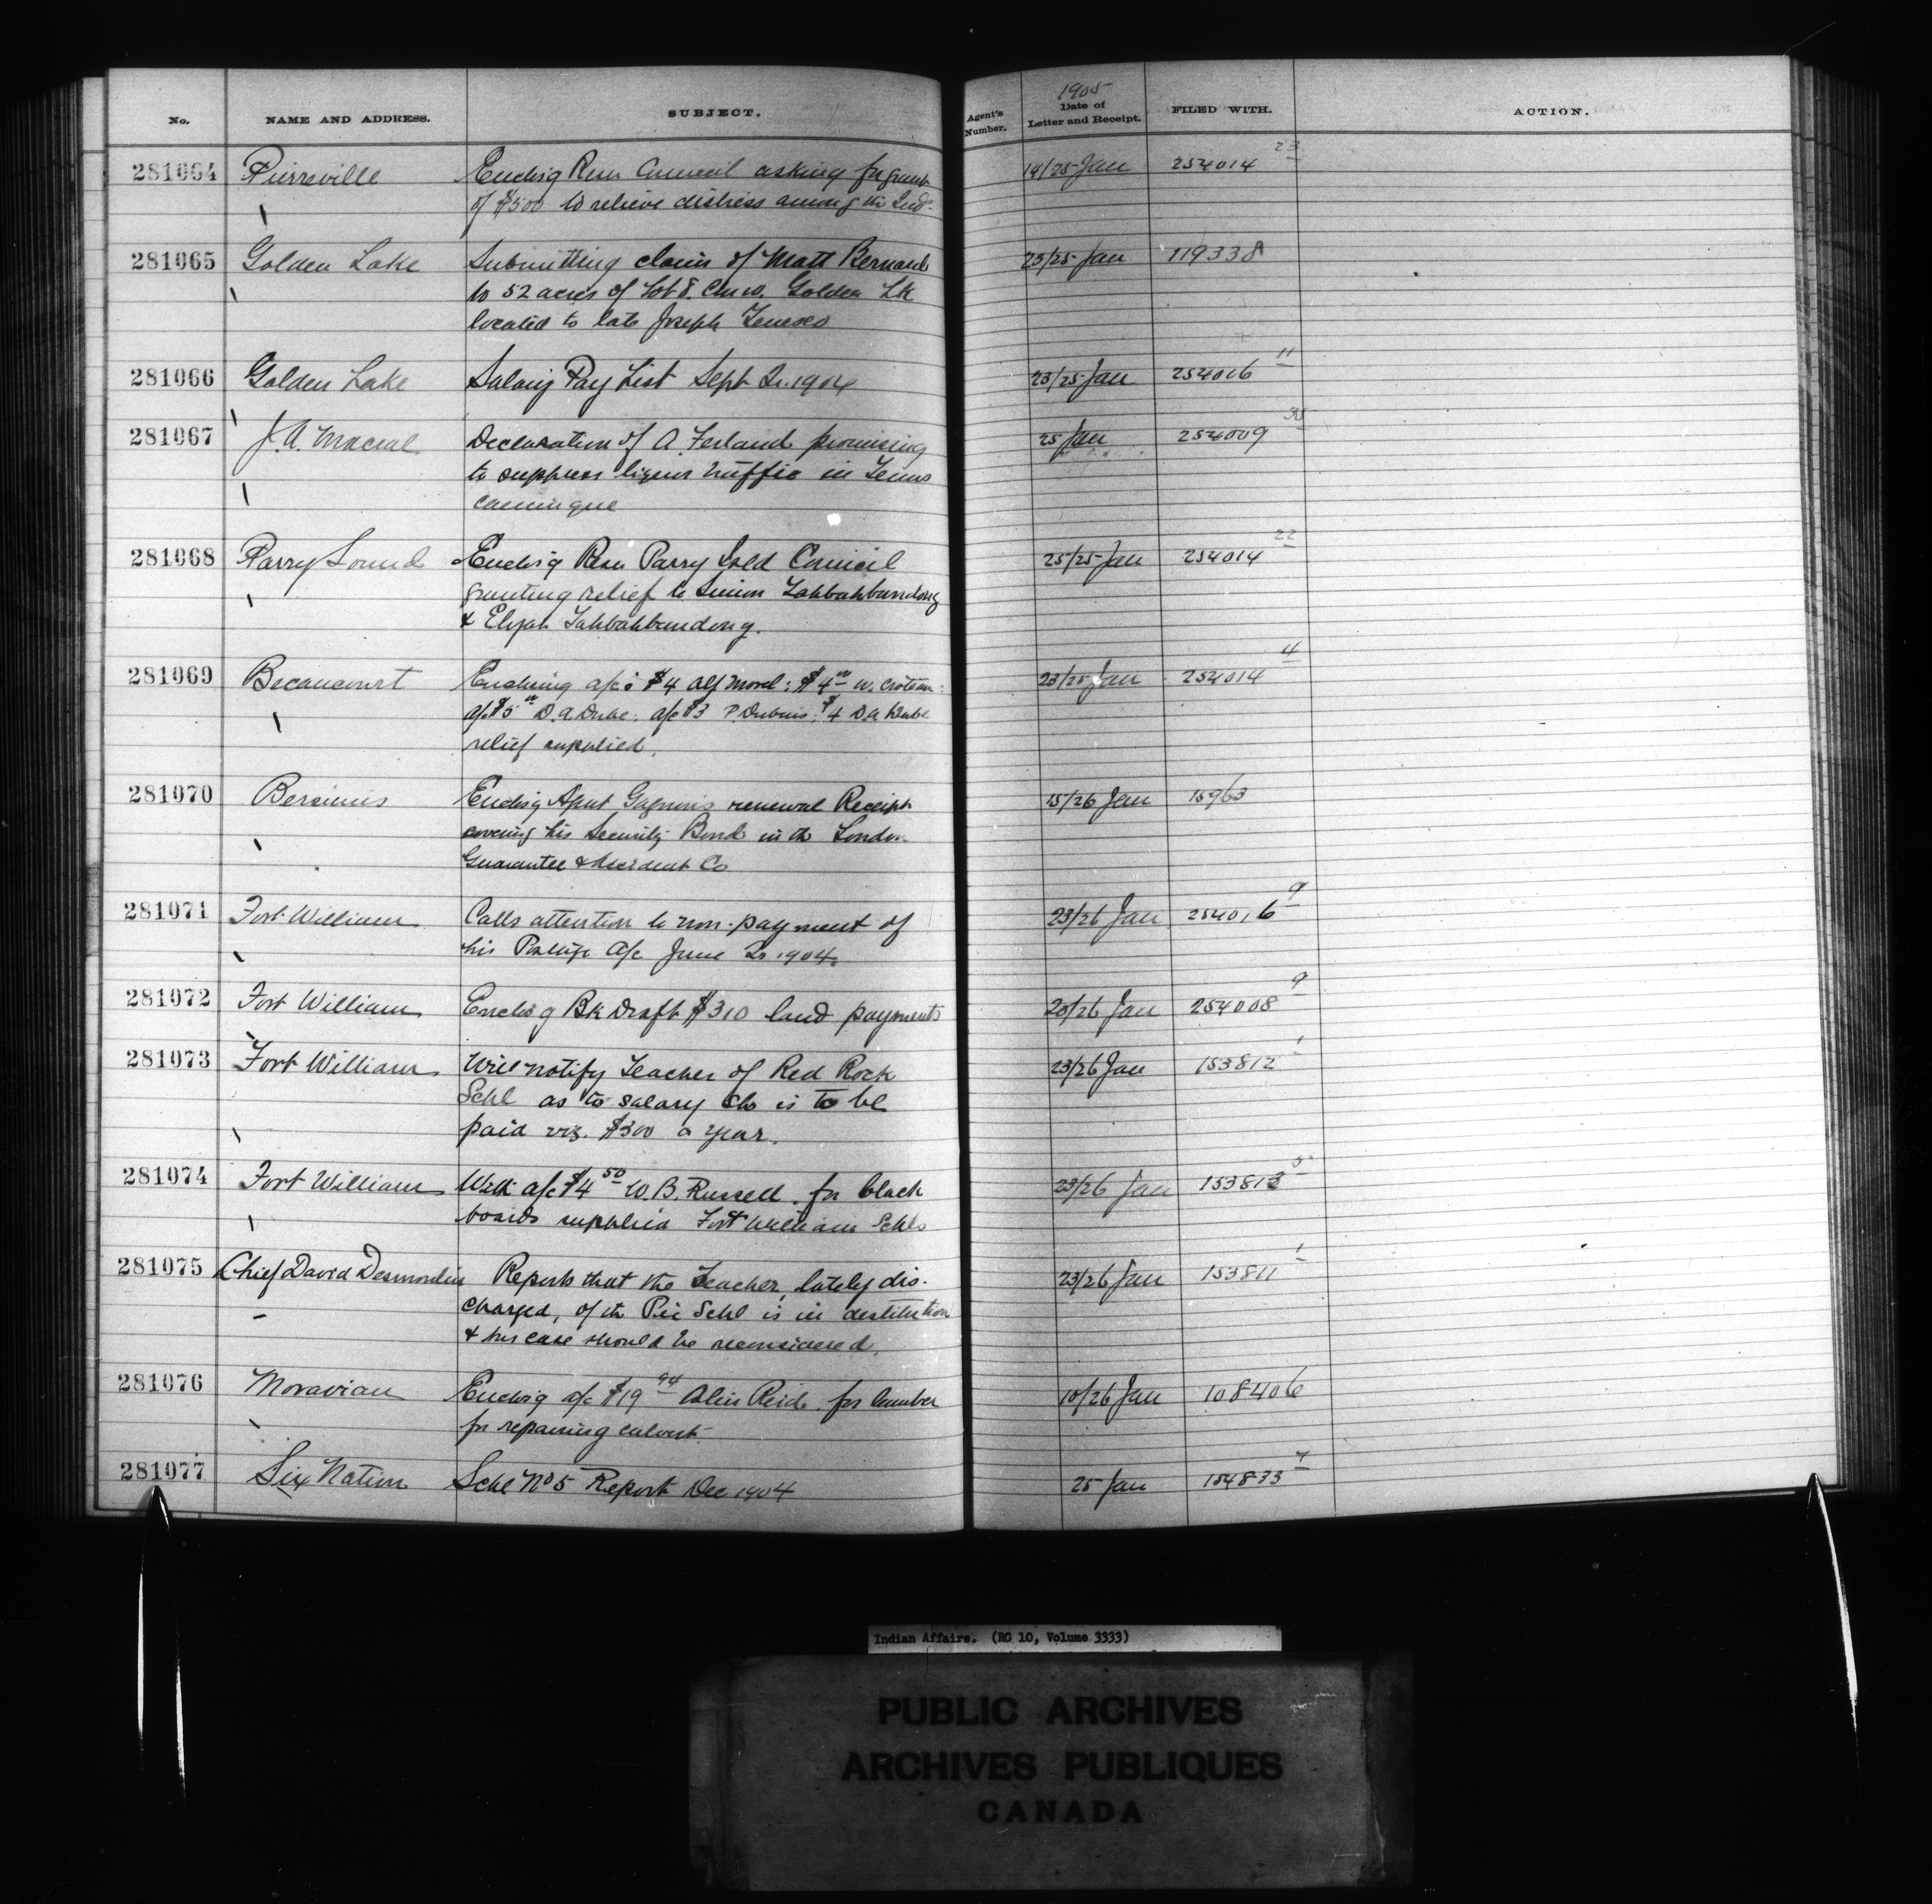 No. NAME AND ADDRESS. SUBJECT. Agent's Number. 1905 Date of Letter and Receipt. FILED WITH. ACTION.
281064 Pierreville Enclosg Resn Council asking for grant 19/25 Jan 254014 23
of $500 to relieve distress among the Inds
281065 Golden Lake Submitting claim of Matt Bernard 23/25 Jan 119338
to 52 acres of Lot 8. Golden Lk
located to late Joseph
281066 Golden Lake Salary Pay List Sept Qr. 1904 23/25 Jan 254016 11
281067 J. A. Declaration of A. Ferland promising 25 Jan 254009 35
to suppress liquor traffic in Temis
camingue
281068 Parry Sound Enclosg Resn Parry Isld Council 25/25 Jan 254014 22
granting relief to Simon Tahbahbundong
& Elijah Tahbahbundong.
281069 Becancourt Enclosing a/cs $4 Alf Morel: $4 W. Croteau: 23/25 Jan 254014 4
a/c $5 D. A. Dube. a/c $3 P. Dubuis: $4 D. A. Dube
relief supplied.
281070 Bersimis Enclosg Agent Gagnon's renewal Receipt 15/26 Jan 15963
covering his Security Bond in the London
Guarantee & Accident Co
281071 Fort William Calls attention to non-payment of 23/26 Jan 254016 9
his Postage a/c June Qr 1904.
281072 Fort William Enclosg Bk Draft $310 land payments 20/26 Jan 254008 9
281073 Fort William Will notify Teacher of Red Rock 23/26 Jan 153812 1
Schl as to salary she is to be
paid viz. $300 a year.
281074 Fort William With a/c $4 50 W. B. Russell for black 23/26 Jan 153812 5
boards supplied Fort William Schls
281075 Chief David Desmoulin Reports that the Teacher, lately dis- 23/26 Jan 153811 1
charged, of the Pic Schl is in destitution
& his case should be reconsidered.
281076 Moravian Enclosg a/c $19 94 Reid for lumber 10/26 Jan 108406
for repairing culvert
281077 Six Nation Schl No 5 Report Dec 1904 25 Jan 154833 7
Indian Affairs. (RG 10, Volume 3333)
PUBLIC ARCHIVES
ARCHIVES PUBLIQUES
CANADA